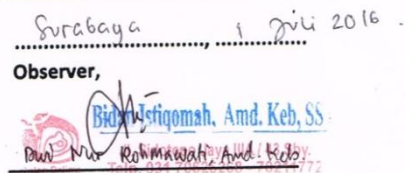 Surabaya, 1 Juli 2016.
Observer,
Bidan Istiqomah, Amd. Keb, SS
Dwi Nur Rohmawati, Amd. Keb.